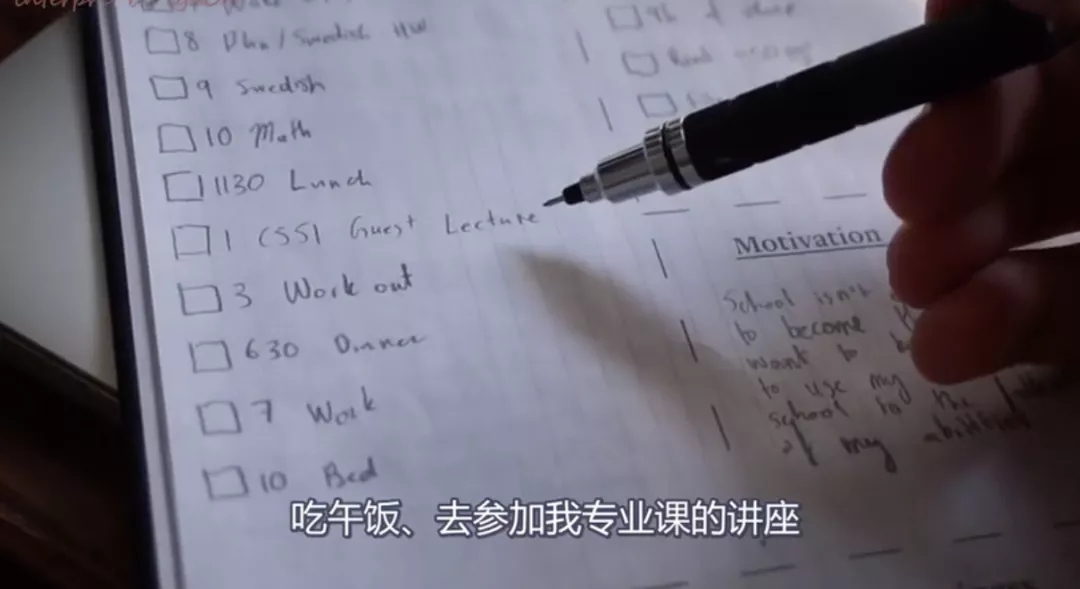 8 / Swedish HW
9 Swedish
10 Math
1130 Lunch
1 CSSI Guest Lecture
3 Work out
630 Dinner
7 Work
10 Bed
Motivation
School isn't
to become
want to
to use my
school to the
of my abilities
吃午饭、去参加我专业课的讲座